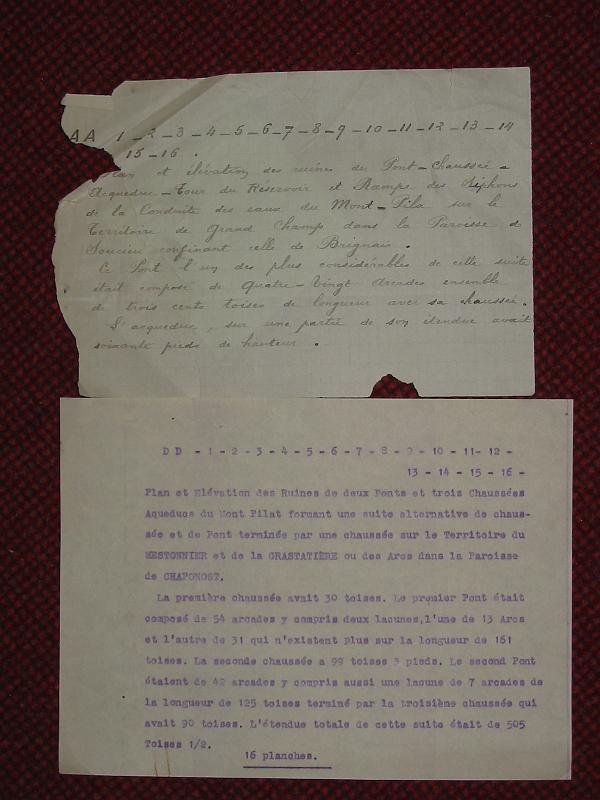 AA 1 - 2 - 3 - 4 - 5 - 6 - 7 - 8 - 9 - 10 - 11 - 12 - 13 - 14
15 - 16 .
Plan et élévation des ruines du Pont - Chaussée -
Acqueduc - Tour du Réservoir et Rampe des Siphons
de la Conduite des eaux du Mont - Pila sur le
Territoire de Grand Champ dans la Paroisse de
Soucieu confinant celle de Brignais .
Ce Pont l'un des plus considérables de cette suite
était composé de Quatre - Vingt Arcades ensemble
de trois cents toises de longueur avec sa chaussée.
L'acqueduc, sur une partie de son étendue avait
soixante pieds de hauteur .
DD - 1 - 2 - 3 - 4 - 5 - 6 - 7 - 8 - 9 - 10 - 11- 12 -
13 - 14 - 15 - 16 -
Plan et Elévation des Ruines de deux Ponts et trois Chaussées
Aqueducs du Mont Pilat formant une suite alternative de chaus-
sée et de Pont terminée par une chaussée sur le Territoire du
MESTONNIER et de la GRASTATIÈRE ou des Arcs dans la Paroisse
de CHAPONOST.
La première chaussée avait 30 toises. Le premier Pont était
composé de 54 arcades y compris deux lacunes,l'une de 13 Arcs
et l'autre de 31 qui n'existent plus sur la longueur de 161
toises. La seconde chaussée a 99 toises 3 pieds. Le second Pont
étaient de 42 arcades y compris aussi une lacune de 7 arcades de
la longueur de 125 toises terminé par la troisième chaussée qui
avait 90 toises. L'étendue totale de cette suite était de 505
Toises 1/2.
16 planches.